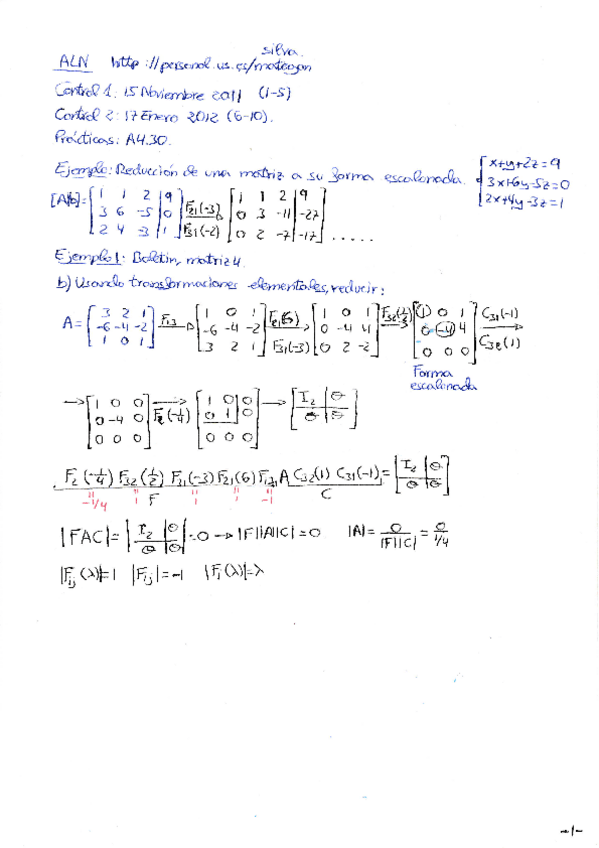 silva.
ALN http://personal.us.es/mateagon
Control 1: 15 Noviembre 2011 (1-5)
Control 2: 17 Enero 2012 (6-10).
Prácticas: A4.30.
Ejemplo: Reducción de una matriz a su forma escalonada. { x+y+2z=9
3x+6y-5z=0
2x+4y-3z=1
[A|b]= [1 1 2 | 9; 3 6 -5 | 0; 2 4 -3 | 1] F21(-3) F31(-2) [1 1 2 | 9; 0 3 -11 | -27; 0 2 -7 | -17] .....
Ejemplo 1: Boletín, matriz 4.
b) Usando transformaciones elementales, reducir:
A= [3 2 1; -6 -4 -2; 1 0 1] F13 → [1 0 1; -6 -4 -2; 3 2 1] F21(6) F31(-3) → [1 0 1; 0 -4 4; 0 2 -2] F32(1/2) → [1 0 1; 0 -4 4; 0 0 0] C31(-1) C32(1) →
Forma
escalonada
→ [1 0 0; 0 -4 0; 0 0 0] F2(-1/4) → [1 0 0; 0 1 0; 0 0 0] → [I2 | Θ; Θ | Θ]
F2(-1/4) F32(1/2) F31(-3) F21(6) F13 A C32(1) C31(-1) = [I2 | Θ; Θ | Θ]
-1/4 1 1 1 -1
F C
|FAC| = |I2 | Θ; Θ | Θ| = 0 → |F||A||C|=0 |A|= 0/|F||C| = 0/1/4
|Fij(λ)|=1 |Fij|=-1 |Fi(λ)|=λ
-1-